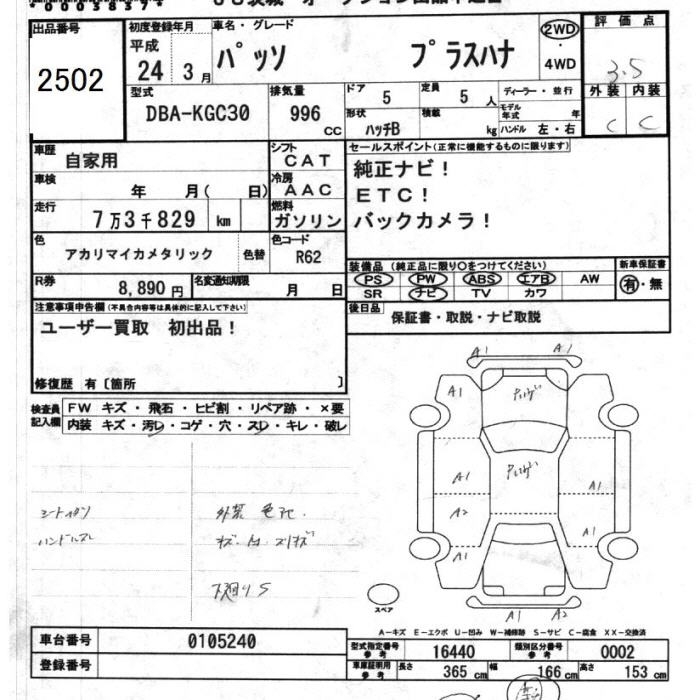 出品番号
2502
初度登録年月
平成
24 3月
車名・グレード
パッソ プラスハナ
2WD
・
4WD
評価点
3.5
外装 内装
C C
型式
DBA-KGC30
排気量
996
CC
ドア
5
定員
5 人
形状
ハッチB
積載
kg
ディーラー・並行
モデル年式 年
ハンドル 左・右
車歴
自家用
シフト
CAT
車検
年 月( 日)
冷房
AAC
走行
7万3千829 km
燃料
ガソリン
色
アカリマイカメタリック
色替
色コード
R62
R券
8,890円
名変通知期限
月 日
セールスポイント(正常に機能するものに限ります)
純正ナビ!
ETC!
バックカメラ!
装備品(純正品に限り○をつけてください)
PS PW ABS エアB AW
SR ナビ TV カワ
新車保証書
有・無
後日品
保証書・取説・ナビ取説
注意事項申告欄(不具合内容等は具体的に記入して下さい)
ユーザー買取 初出品!
修復歴 有〔箇所 〕
検査員記入欄
FW キズ・飛石・ヒビ割・リペア跡・×要
内装 キズ・汚レ・コゲ・穴・スレ・キレ・破レ
ハンドルスレ
外装 色アセ
下廻りS
A1 A1
A1 A1
A1 A1
A2
A1 A1
A1 A2
スペア
A-キズ E-エクボ U-凹み W-補修跡 S-サビ C-腐食 XX-交換済
車台番号
0105240
登録番号
型式指定番号
参考
16440
類別区分番号
参考
0002
車庫証明用
参考
長さ
365 cm
幅
166 cm
高さ
153 cm